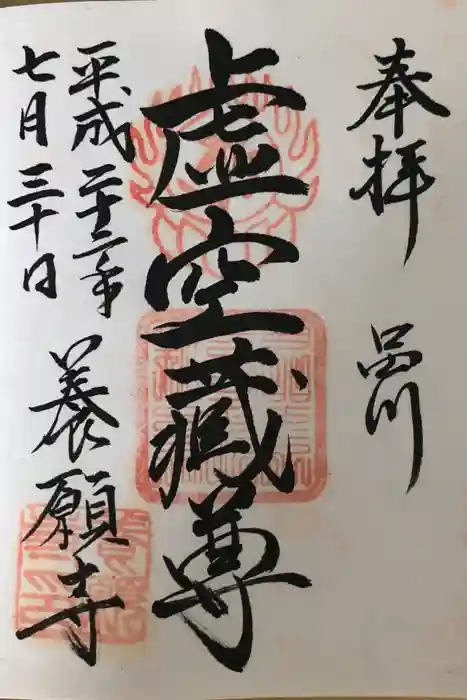 奉拝 品川
虚空蔵尊
平成二十三年
七月三十日
養願寺